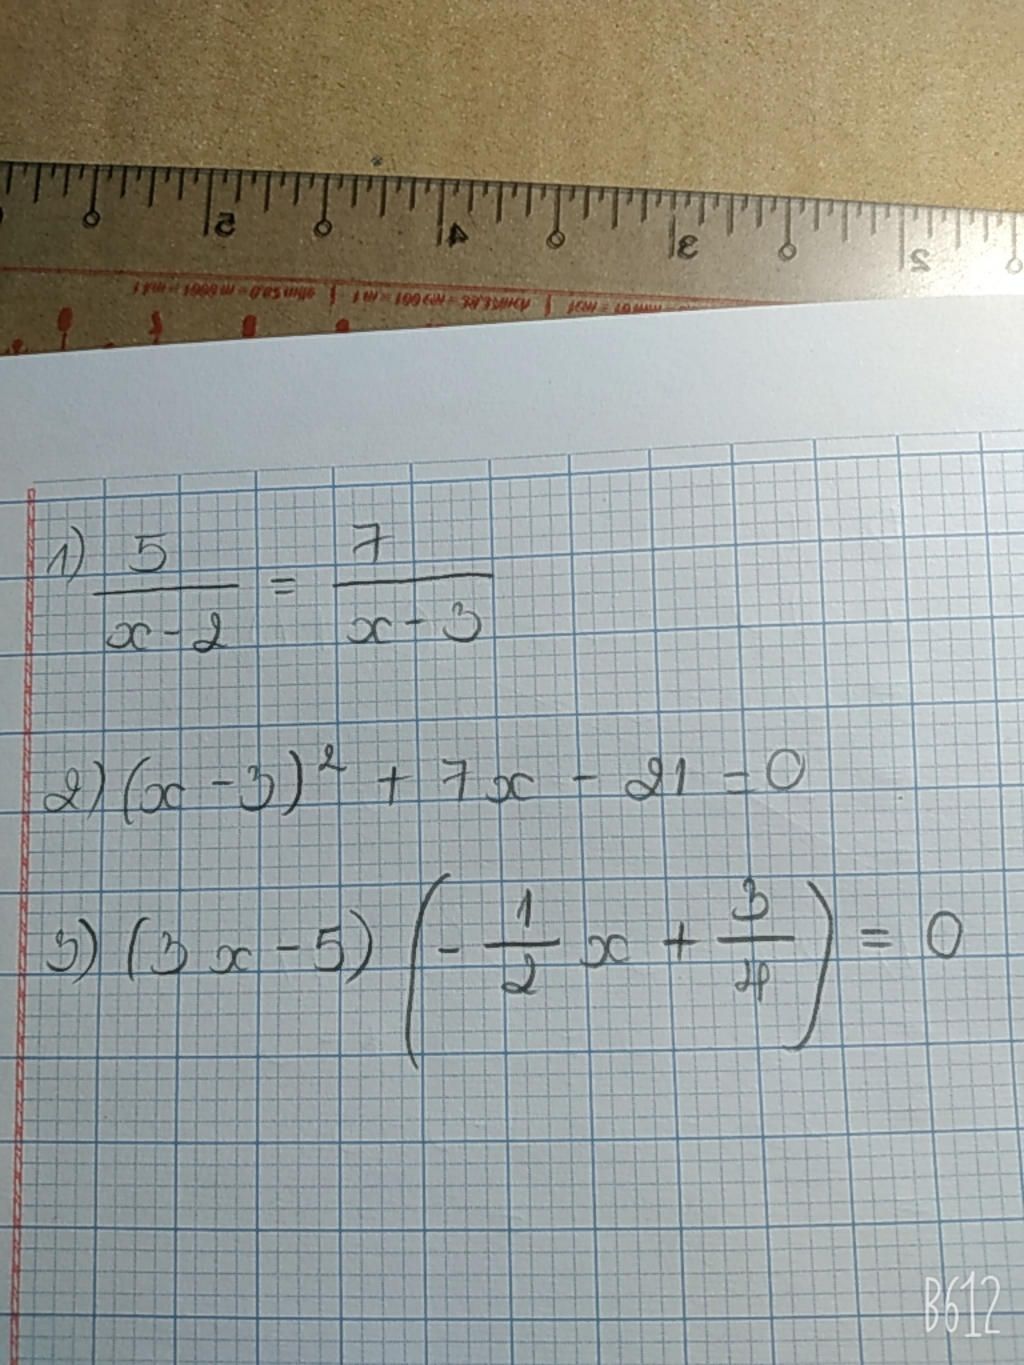 5
4
3
2
1) 5/(x-2) = 7/(x-3)
2) (x-3)² + 7x - 21 = 0
3) (3x-5)(-1/2 x + 3/4) = 0
B612